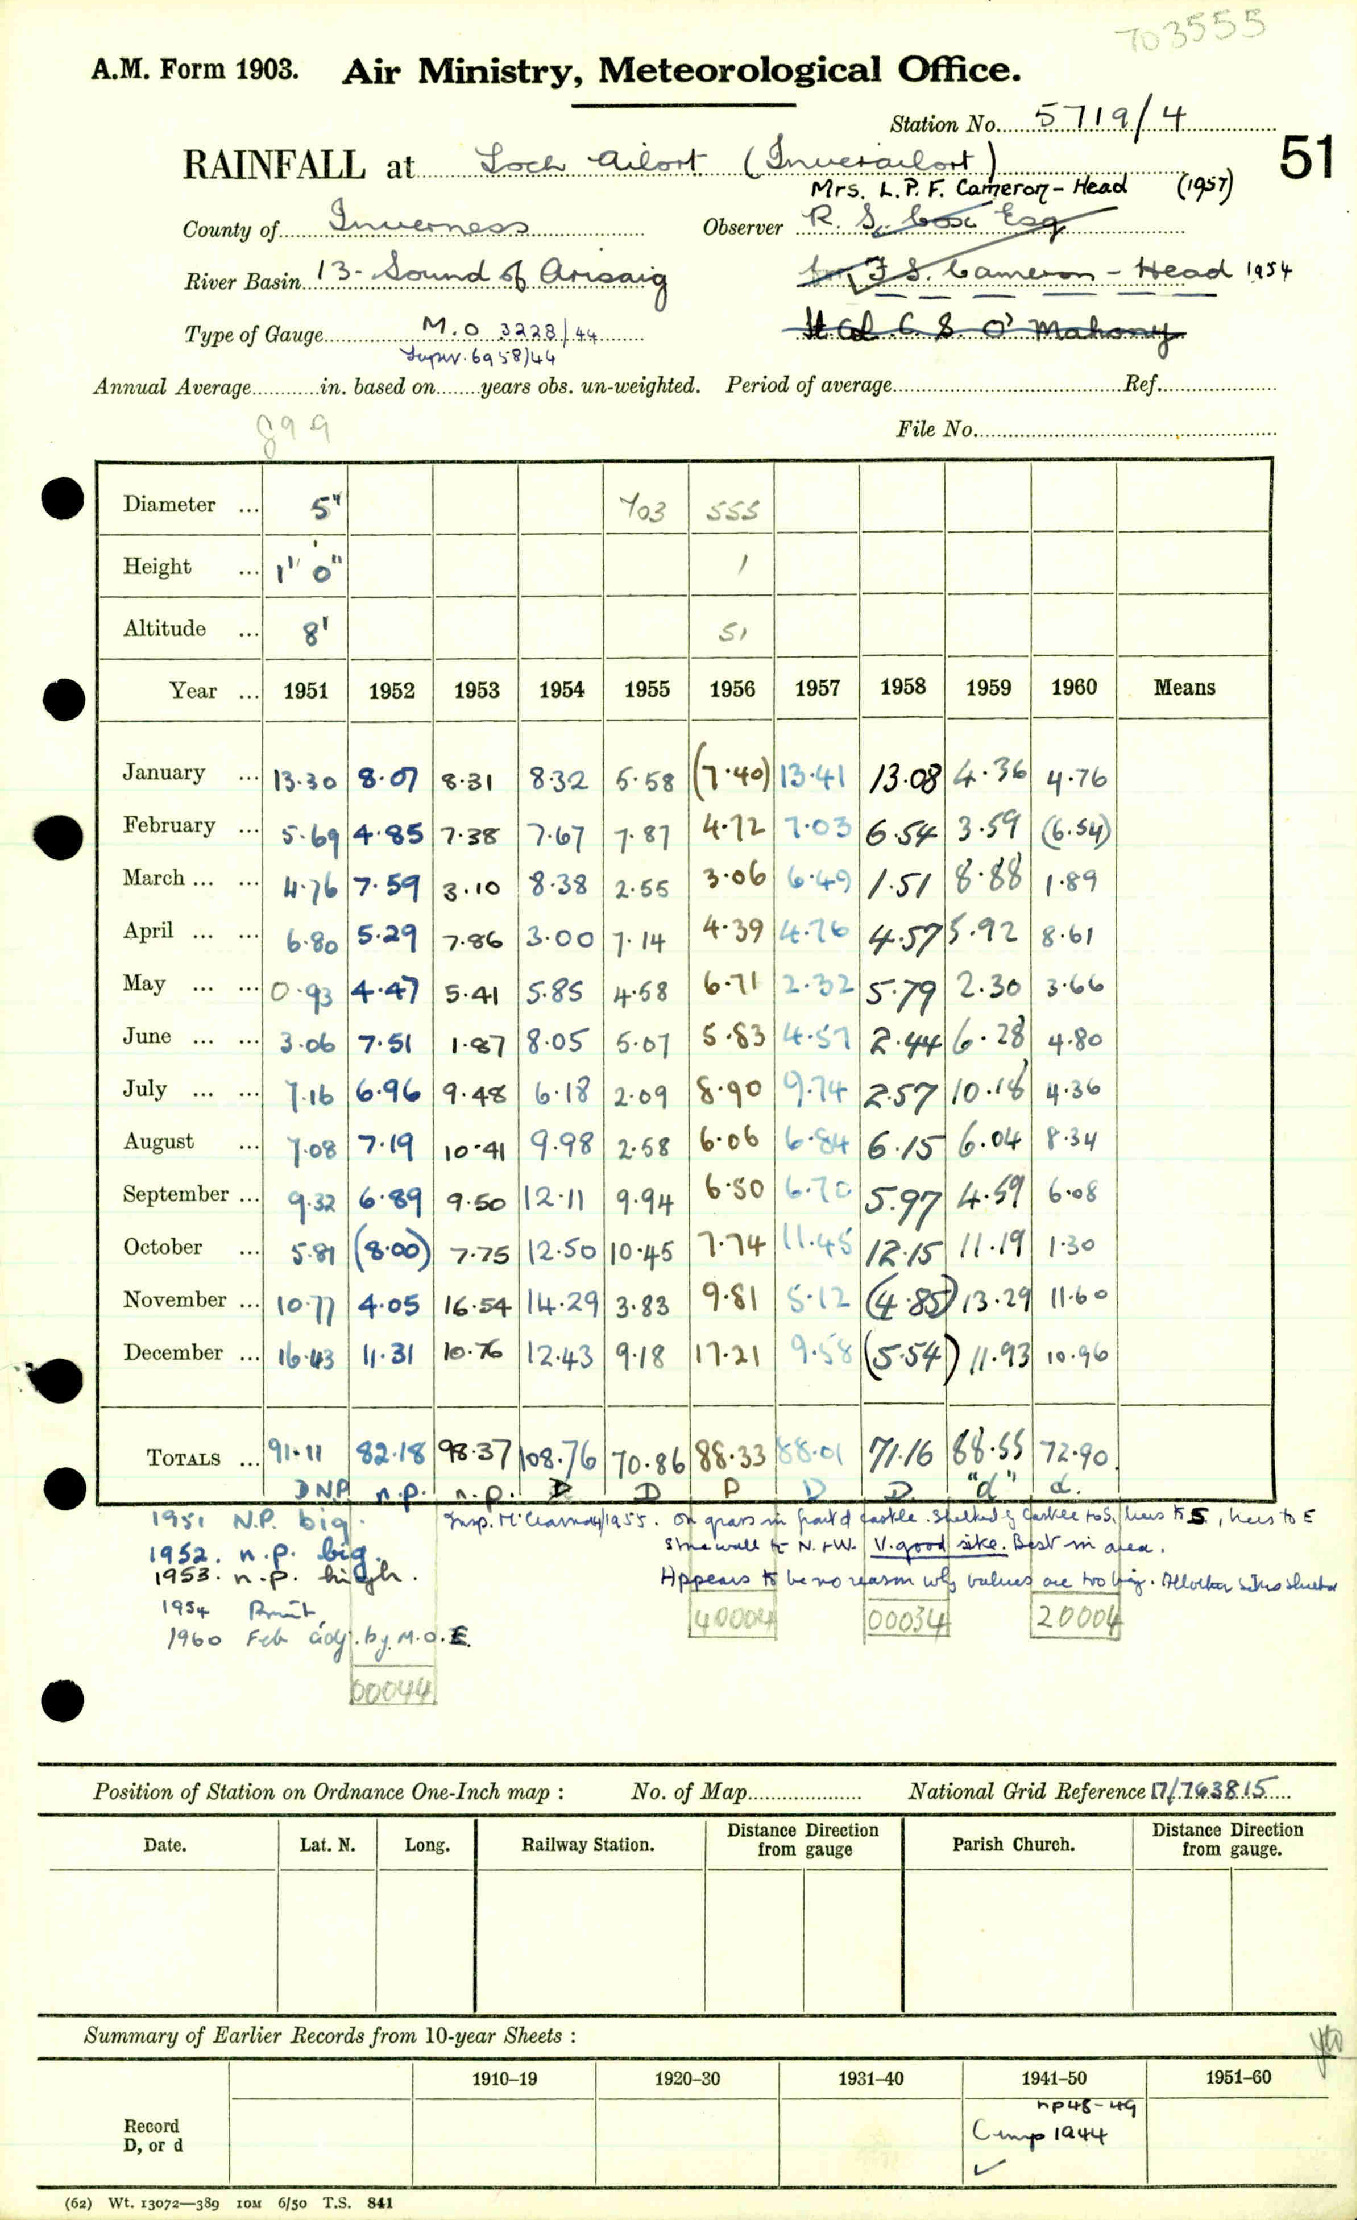 703555
A.M. Form 1903. Air Ministry, Meteorological Office.
Station No. 5719/4
51
RAINFALL at Loch Ailort (Inverailort)
Mrs. L. P. F. Cameron-Head (1957)
County of Inverness Observer R. S. Cox Esq
River Basin 13- Sound of Arisaig F. S. Cameron-Head 1954
Type of Gauge M.O 3228/44 Lt Col C. S. O'Mahony
6958/44
Annual Average in. based on years obs. un-weighted. Period of average Ref.
899
File No.
Diameter ... 5" 703 555
Height ... 1' 0" 1
Altitude ... 8' 51
Year ... 1951 1952 1953 1954 1955 1956 1957 1958 1959 1960 Means
January ... 13.30 8.07 8.31 8.32 5.58 (7.40) 13.41 13.08 4.36 4.76
February ... 5.69 4.85 7.38 7.67 7.87 4.72 7.03 6.54 3.59 (6.54)
March ... ... 4.76 7.59 3.10 8.38 2.55 3.06 6.49 1.51 8.88 1.89
April ... ... 6.80 5.29 7.86 3.00 7.14 4.39 4.76 4.57 5.92 8.61
May ... ... 0.93 4.47 5.41 5.85 4.58 6.71 2.32 5.79 2.30 3.66
June ... ... 3.06 7.51 1.87 8.05 5.07 5.83 4.57 2.44 6.28 4.80
July ... ... 7.16 6.96 9.48 6.18 2.09 8.90 9.74 2.57 10.18 4.36
August ... 7.08 7.19 10.41 9.98 2.58 6.06 6.84 6.15 6.04 8.34
September ... 9.32 6.89 9.50 12.11 9.94 6.50 6.70 5.97 4.59 6.08
October ... 5.81 (8.00) 7.75 12.50 10.45 7.74 11.45 12.15 11.19 1.30
November ... 10.77 4.05 16.54 14.29 3.83 9.81 5.12 (4.85) 13.29 11.60
December ... 16.43 11.31 10.76 12.43 9.18 17.21 9.58 (5.54) 11.93 10.96
TOTALS ... 91.11 82.18 98.37 108.76 70.86 88.33 88.01 71.16 88.55 72.90
D N.P. n.p. n.p. D D D D D "d" d.
1951 N.P. big. Insp. 1955. On grass in front of castle. Sheltered by castle to S, trees to S, trees to E
1952. n.p. big. Stone wall to N. + W. V. good site. Best in area.
1953. n.p. high. Appears to be no reason why values are too big. All other sites
1954
40004 00034 20004
1960 Feb adj. by M.O.E.
00044
Position of Station on Ordnance One-Inch map : No. of Map National Grid Reference 17/763815
Date. Lat. N. Long. Railway Station. Distance from Direction gauge Parish Church. Distance from Direction gauge.
Summary of Earlier Records from 10-year Sheets :
1910-19 1920-30 1931-40 1941-50 1951-60
Record
D, or d
np48-49
Comp 1944
(62) Wt. 13072—389 10M 6/50 T.S. 841